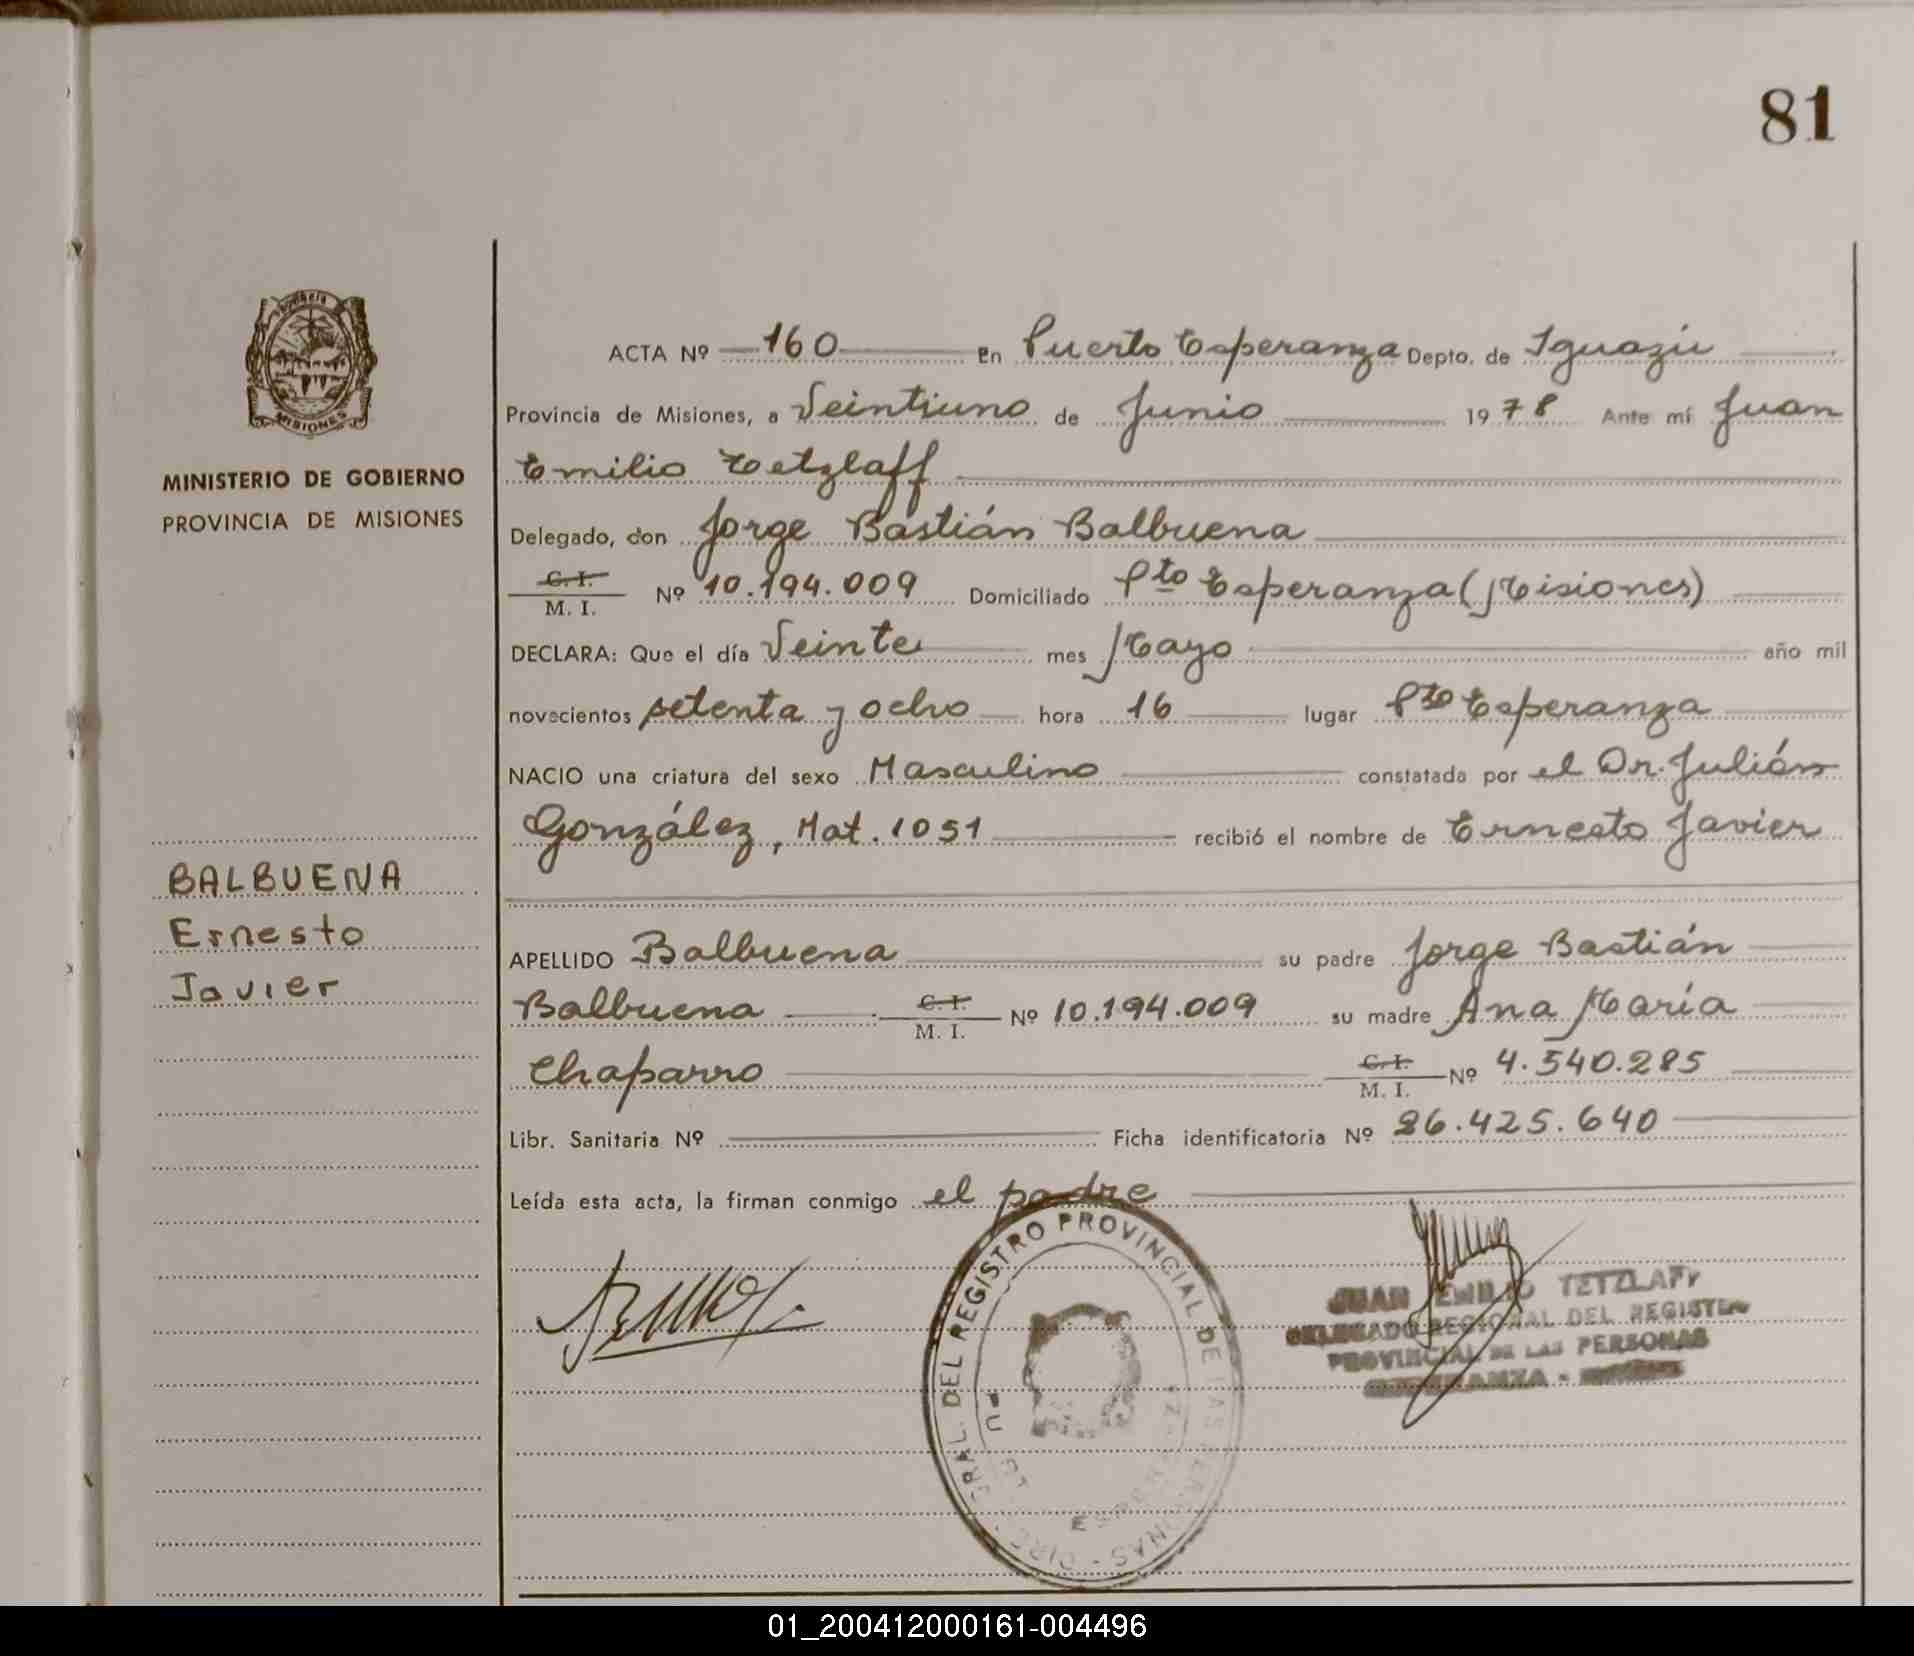 81
MISIONES
MINISTERIO DE GOBIERNO
PROVINCIA DE MISIONES
BALBUENA
Ernesto
Javier
ACTA Nº 160 En Puerto Esperanza Depto. de Iguazú
Provincia de Misiones, a Veintiuno de Junio 1978 Ante mí Juan
Emilio Tetzlaff
Delegado, don Jorge Bastián Balbuena
C. I.
M. I. Nº 10.194.009 Domiciliado Pto Esperanza (Misiones)
DECLARA: Que el día Veinte mes Mayo año mil
novecientos setenta y ocho hora 16 lugar Pto Esperanza
NACIO una criatura del sexo Masculino constatada por el Dr. Julián
González, Mat. 1051 recibió el nombre de Ernesto Javier
APELLIDO Balbuena su padre Jorge Bastián
Balbuena C. I. M. I. Nº 10.194.009 su madre Ana María
Chaparro C. I. M. I. Nº 4.540.285
Libr. Sanitaria Nº Ficha identificatoria Nº 26.425.640
Leída esta acta, la firman conmigo el padre
DEL REGISTRO PROVINCIAL DE LAS
JUAN EMILIO TETZLAFF
DELEGADO REGIONAL DEL REGISTRO
PROVINCIAL DE LAS PERSONAS
01_200412000161-004496